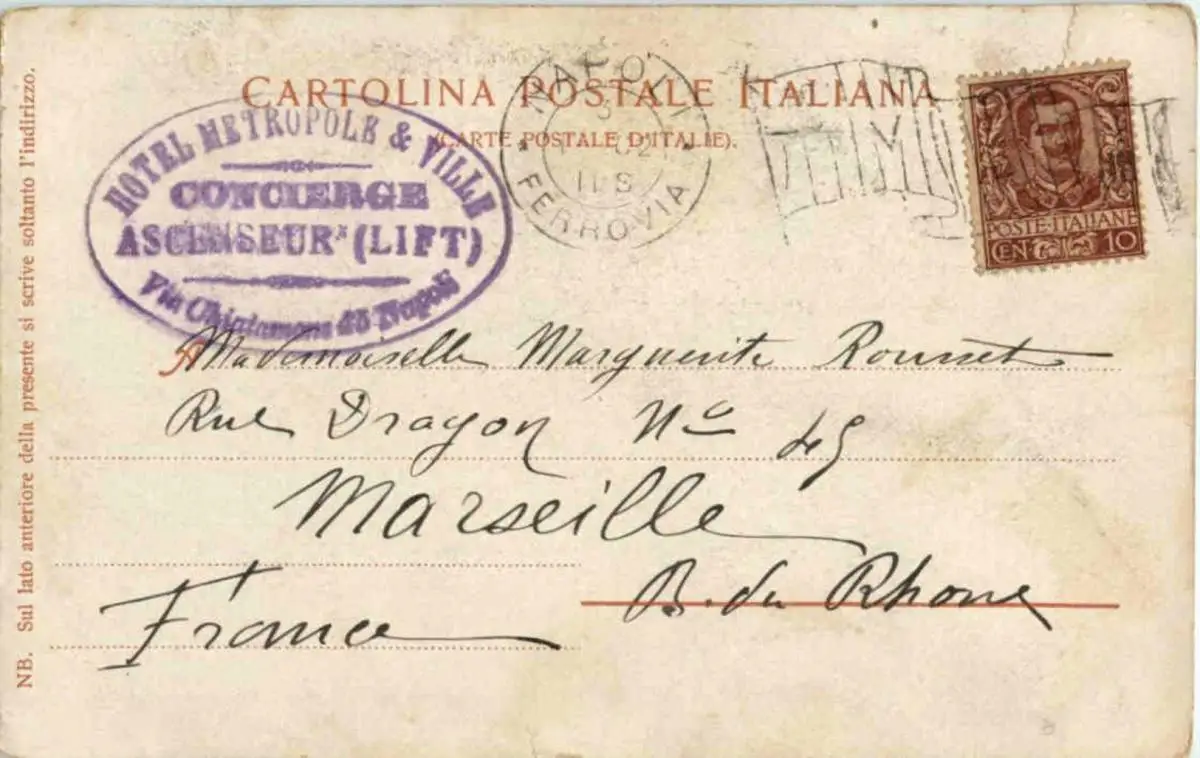 CARTOLINA POSTALE ITALIANA
(CARTE POSTALE D'ITALIE).
HOTEL METROPOLE & VILLE
CONCIERGE
ASCENSEUR (LIFT)
Via Chiatamone Napoli
NAPOLI
FERROVIA
POSTE·ITALIANE
CEN 10
A Mademoiselle Marguerite Rousset
Rue Dragon No 49
Marseille
B. du Rhone
France
NB. Sul lato anteriore della presente si scrive soltanto l'indirizzo.